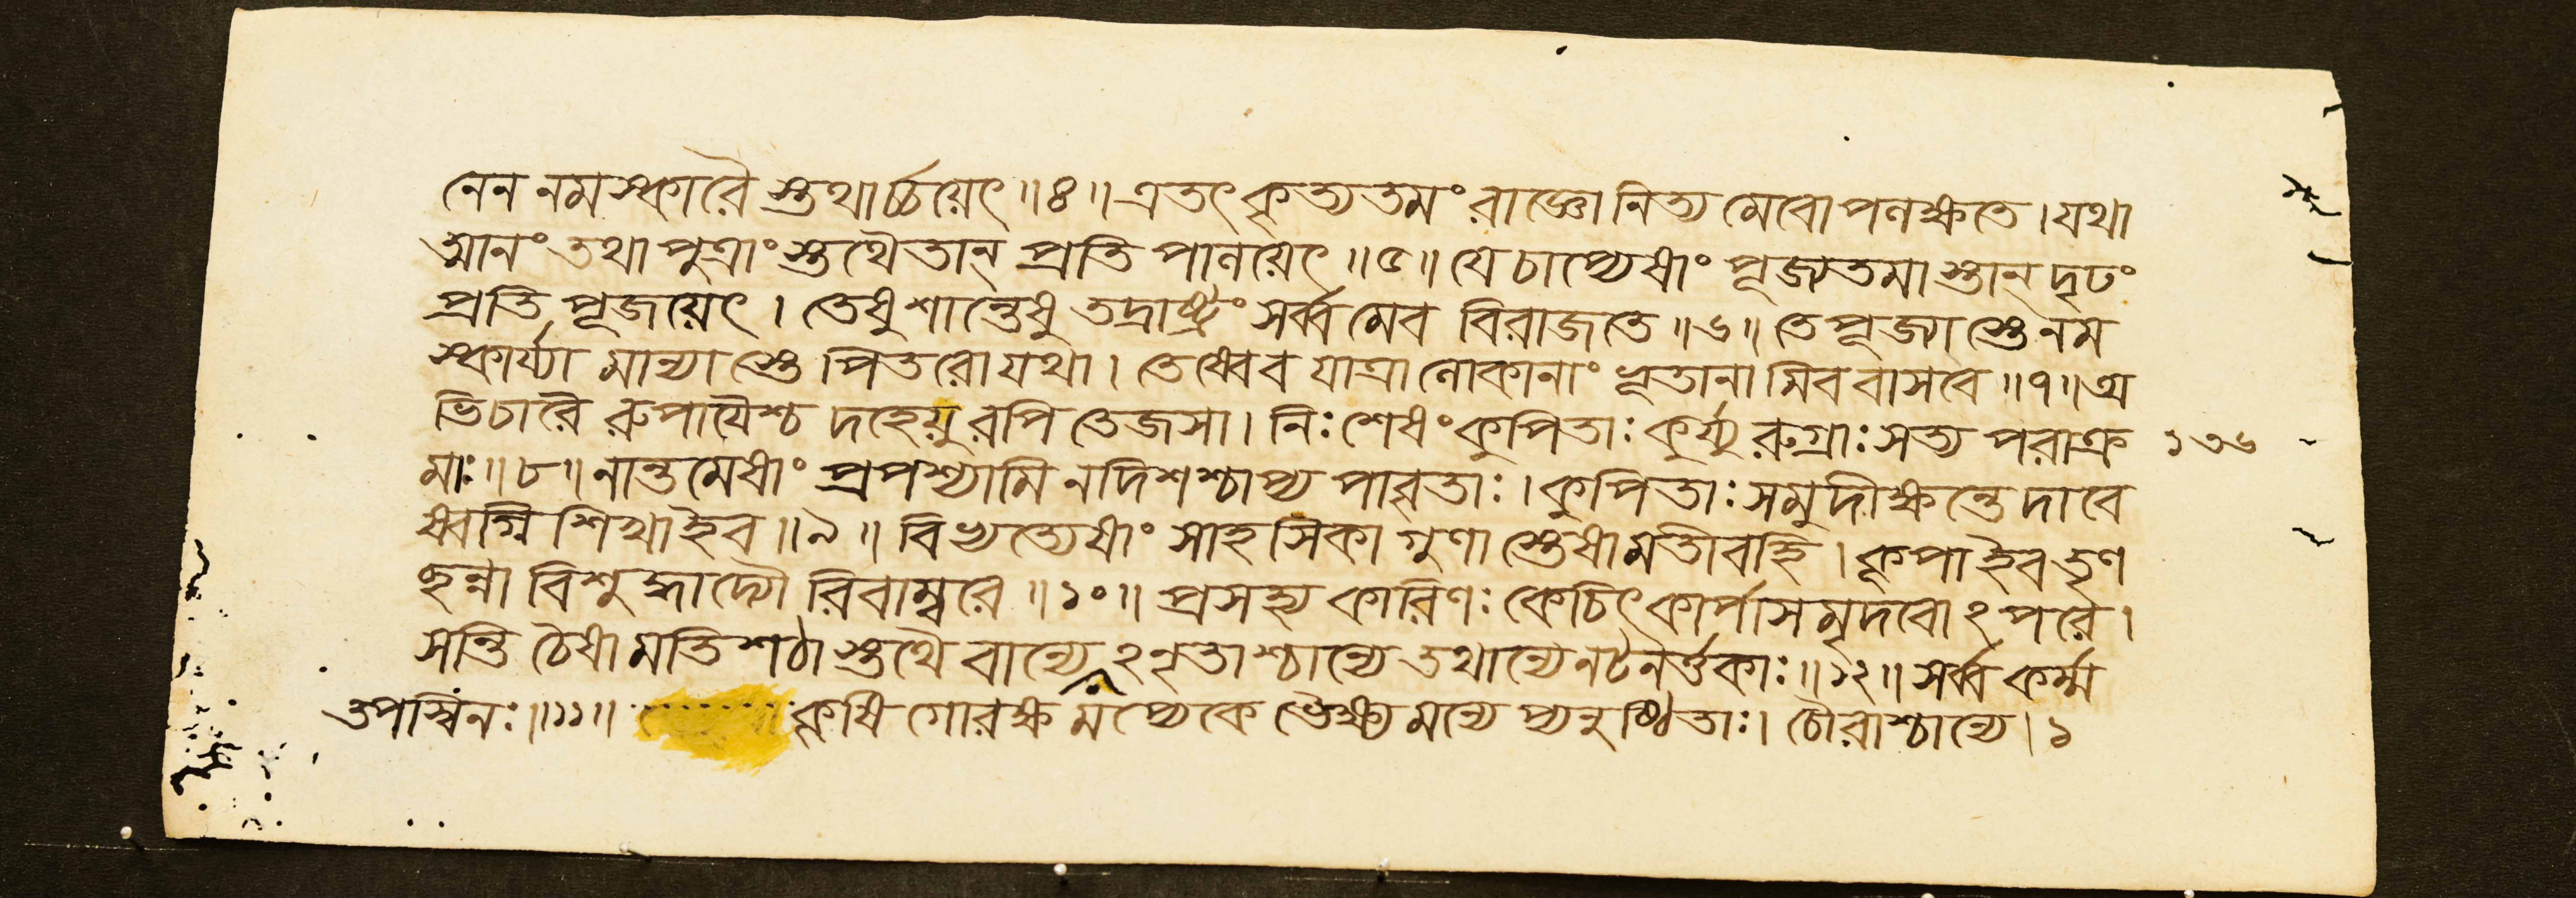 নেন নমস্কারৈ স্তুথার্চ্চয়েৎ ॥৪॥ এতৎ কৃত্যতমং রাজ্ঞো নিত্য মেবো পলক্ষতে । যথা
ত্মানং তথা পুত্রাং স্তথৈতান্ প্রতি পালয়েৎ ॥৫॥ যে চাপ্যেষাং পূজ্যতমা স্তান্ দৃঢং
প্রতি পূজয়েৎ । তেষু শান্তেষু তদ্রাষ্ট্রং সর্ব্ব মেব বিরাজতে ॥৬॥ তে পূজ্যা স্তে নম
স্কার্য্যা মান্যা স্তে পিতরো যথা । তেষ্বেব যাত্রা লোকানাং ভূতানা মিব বাসবে ॥৭॥ অ
ভিচারৈ রুপায়ৈশ্চ দহেয়ু রপি তেজসা । নিঃশেষং কুপিতাঃ কুর্য্যু রুগ্রাঃ সত্য পরাক্র ১৩৬
মাঃ ॥৮॥ নান্ত মেষাং প্রপশ্যামি ন দিশশ্চাপ্য পাবৃতাঃ । কুপিতাঃ সমুদীক্ষন্তে দাবে
ষ্বগ্নি শিখা ইব ॥৯॥ বিভ্যত্যেষাং সাহসিকা গুণা স্তেষা মতীবহি । কূপা ইব তৃণ
ছন্না বিশুদ্ধা দ্যৌ রিবাম্বরে ॥১০॥ প্রসহ্য কারিণঃ কেচিৎ কার্পাস মৃদবো ২ পরে ।
সন্তি চৈষা মতি শঠা স্তথৈ বান্যে ২ নৃতাশ্চান্যে তথান্যে নট নর্ত্তকাঃ ॥১২॥ সর্ব্ব কর্ম্ম
তপস্বিনঃ ॥১১॥ কৃষি গোরক্ষ মপ্যেকে ভৈক্ষ্য মন্যে প্যনুষ্ঠিতাঃ । চৌরাশ্চান্যে । ১